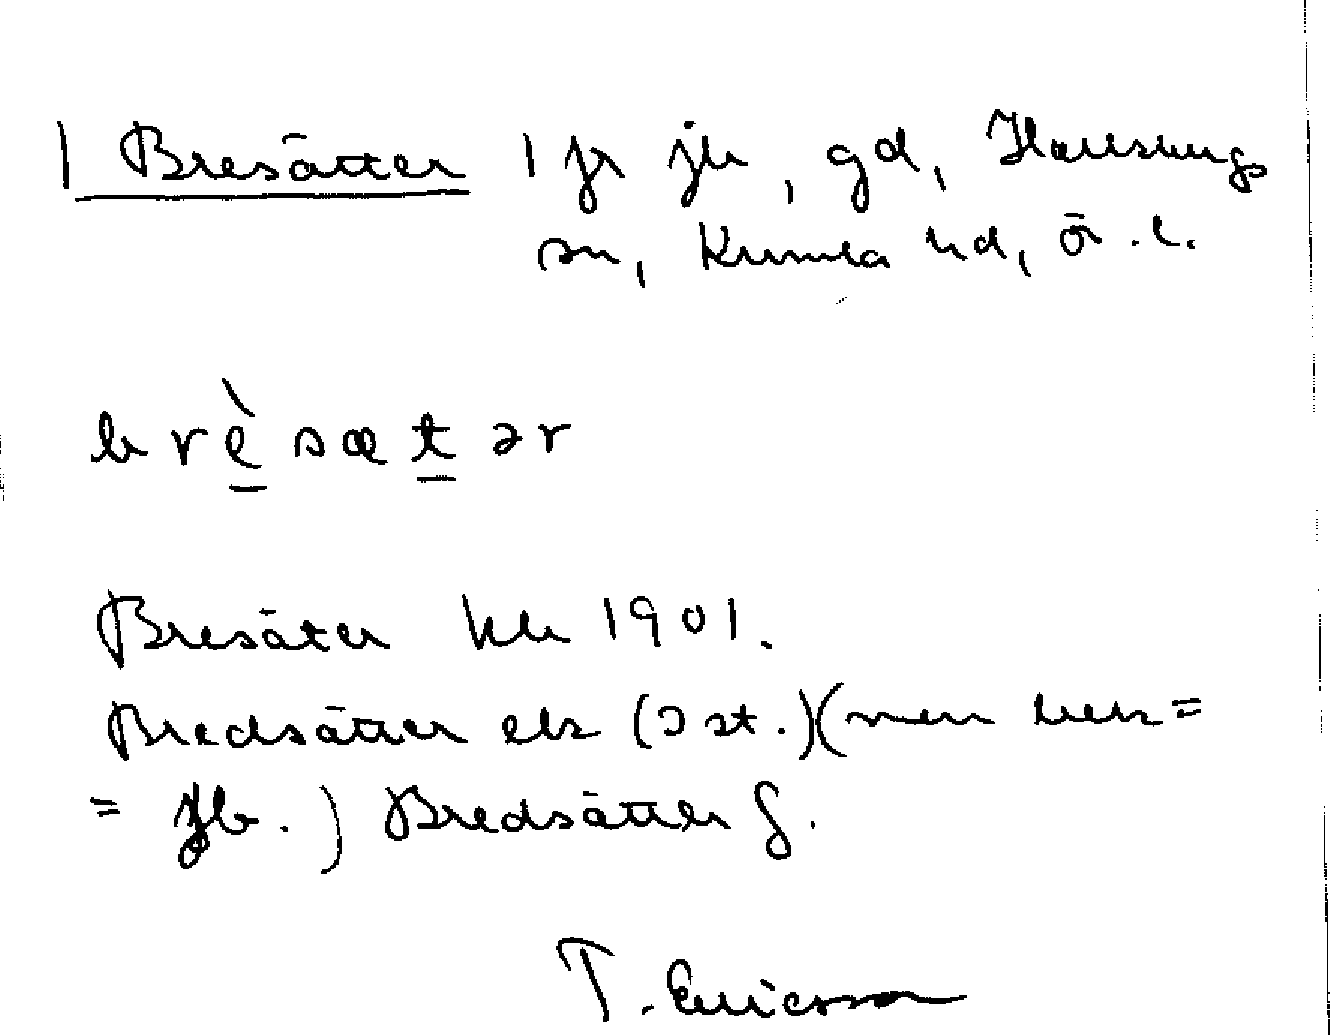 | Bresätter 1 fr jb, gd, Hallsbergs
sn, Kumla hd, Ö.l.
brè̱sæṯər
Bresäter hbl 1901.
Bredsätter els (Ö st.)(men beb=
= jb.) Bredsätter G.
T. Ericsson